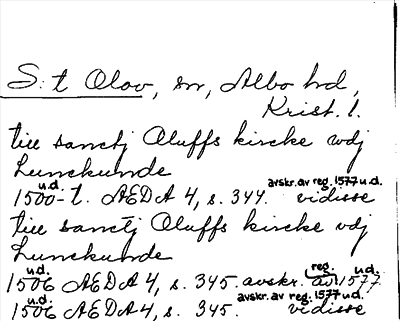 S:t Olov, sn, Albo hd,
Krist. l.
till sanctj Oluffs kircke vdj
Lunckunde
u.d. avskr. av reg. 1577 u.d.
1500-t. ÆDA 4, s. 344. vidisse
till sanctj Oluffs kircke vdj
Lunckunde
u.d. reg. u.d.
1506 ÆDA 4, s. 345. avskr. av 1577
u.d. avskr. av reg. 1577 u.d.
1506 ÆDA 4, s. 345. vidisse